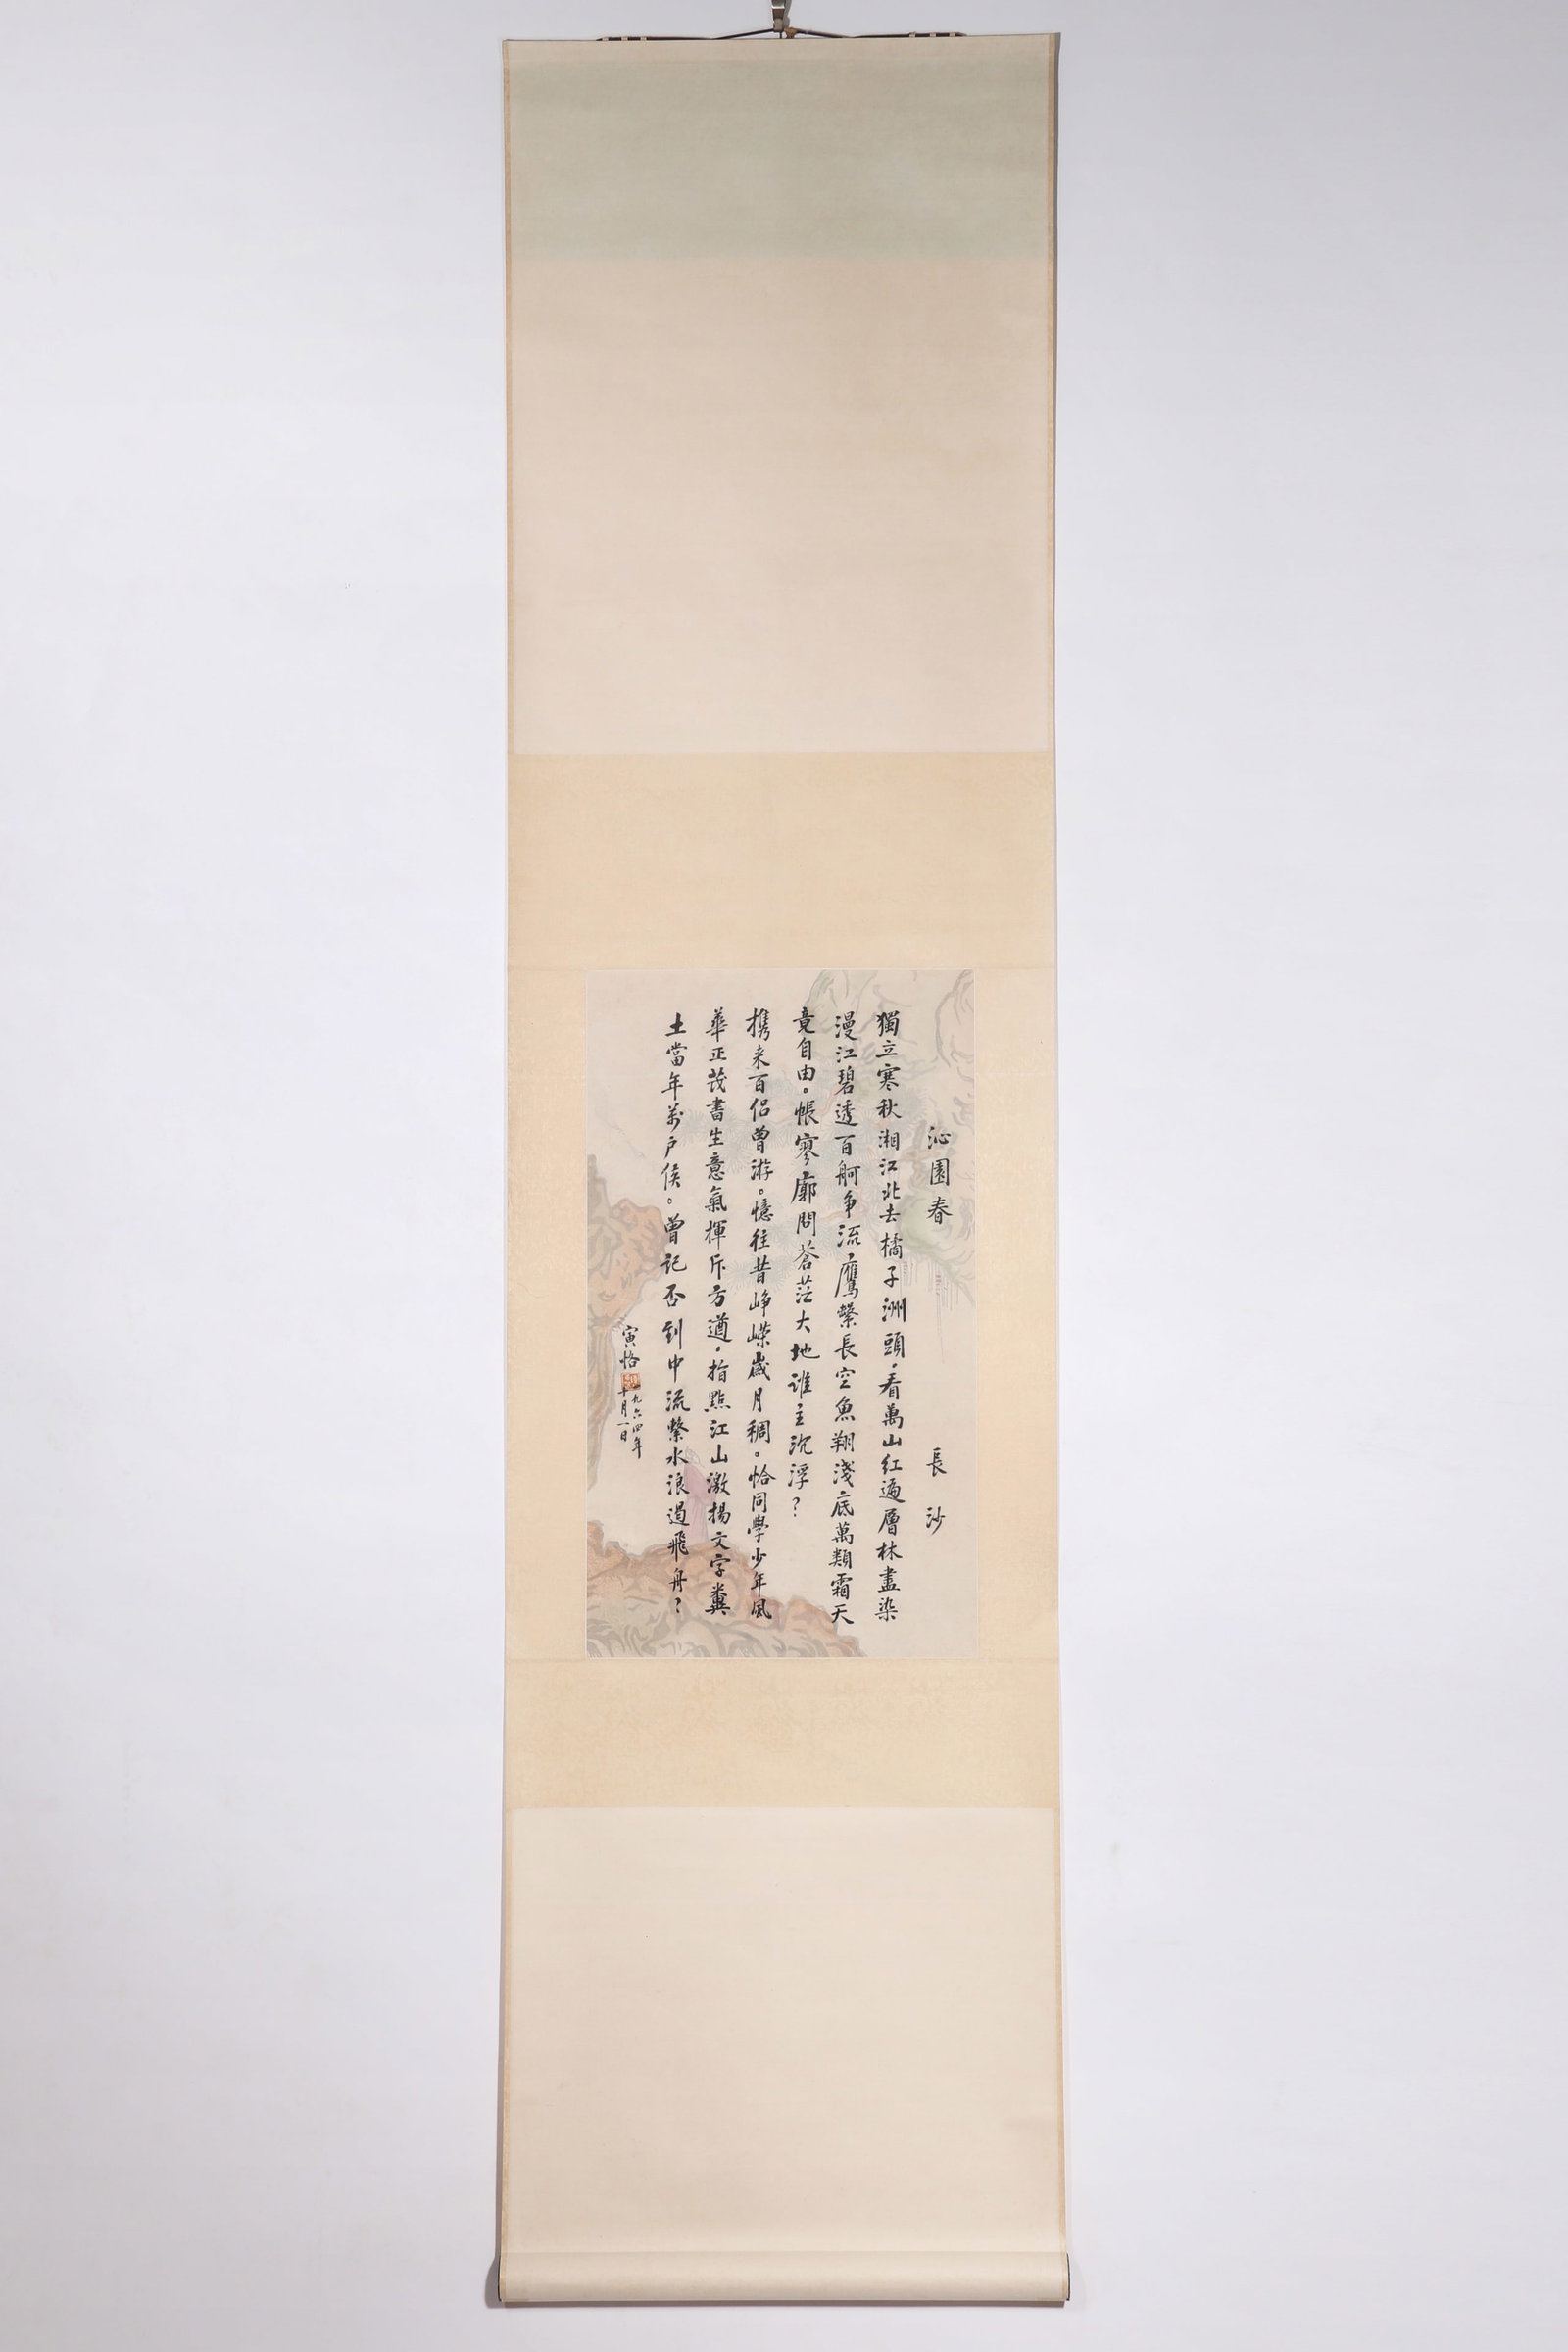 沁園春 長沙
獨立寒秋湘江北去橘子洲頭，看萬山紅遍層林盡染
漫江碧透百舸争流鷹繫長空魚翔淺底萬類霜天
竟自由。帳寥廓問蒼茫大地誰主沉浮？
携来百侣曾游。憶往昔崢嶸歲月稠。恰同學少年風
華正茂書生意氣揮斥方遒，指點江山激揚文字糞
土當年萬户侯。曾記否到中流繫水浪遏飛舟？
寅恪
一九六四年
十月一日